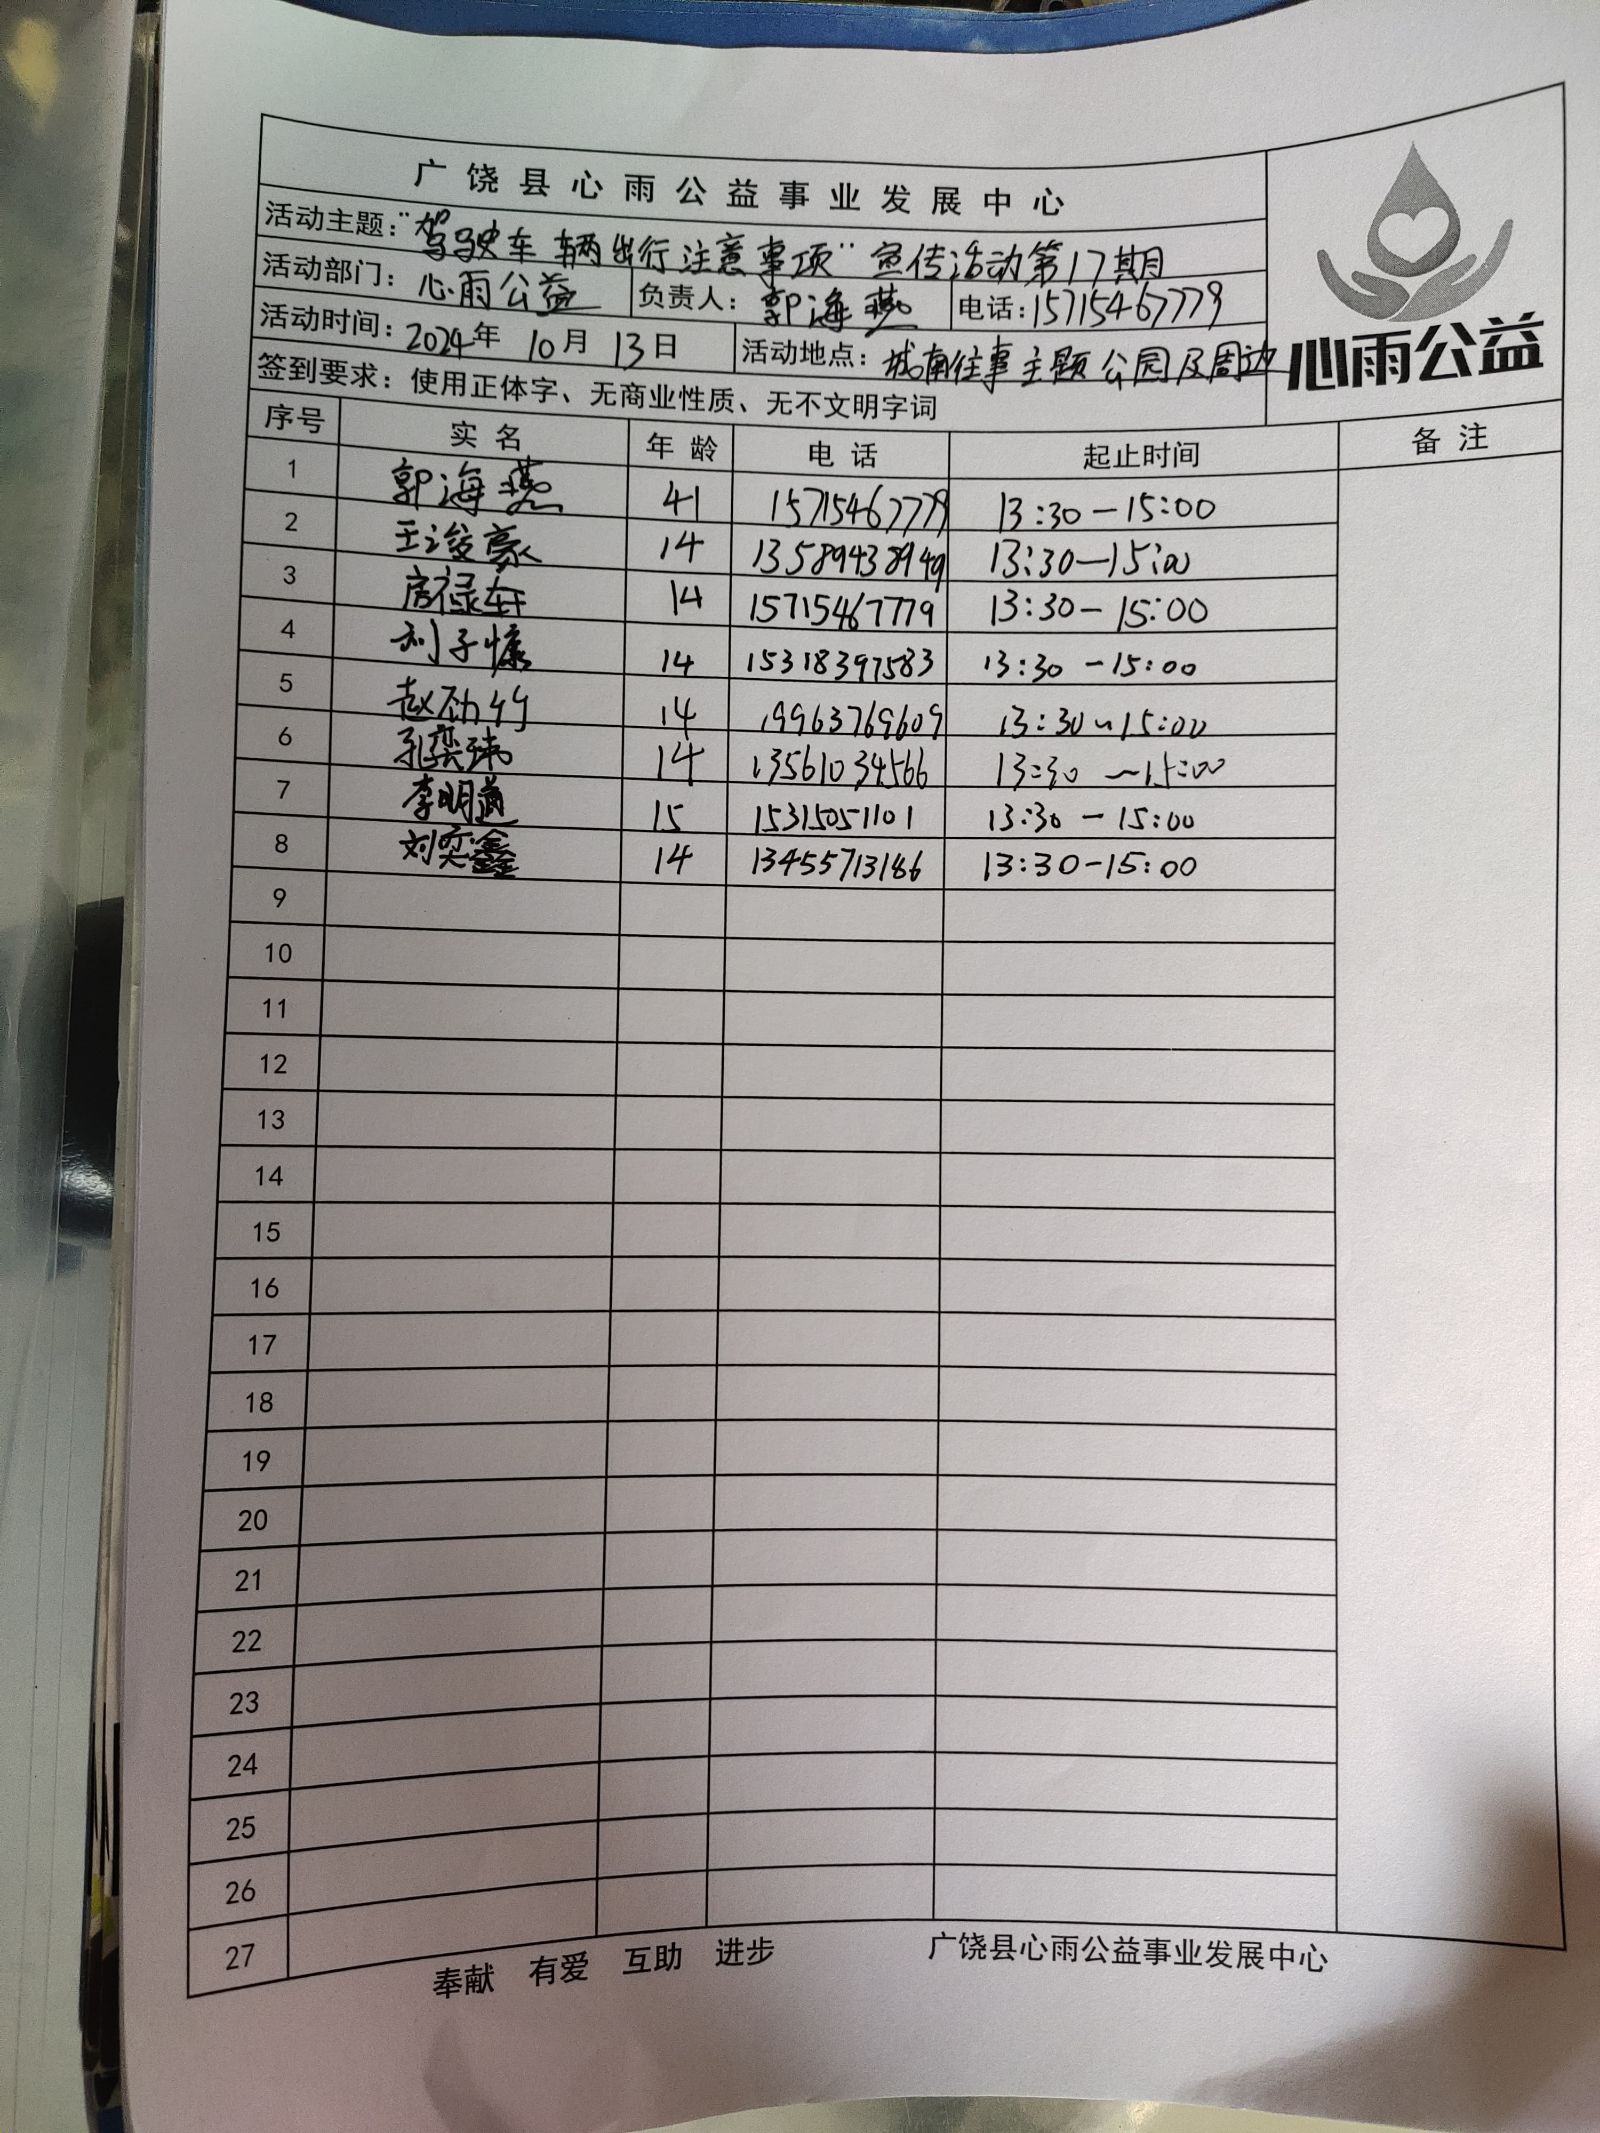 广饶县心雨公益事业发展中心
活动主题："驾驶车辆出行注意事项"宣传活动第17期
活动部门：心雨公益 负责人：郭海燕 电话：15715467779
活动时间：2024年 10月 13日 活动地点：城南往事主题公园及周边
签到要求：使用正体字、无商业性质、无不文明字词
心雨公益
序号 实名 年龄 电话 起止时间 备注
1 郭海燕 41 15715467779 13:30—15:00
2 王浚豪 14 13589438949 13:30—15:00
3 房禄轩 14 15715467779 13:30—15:00
4 刘子慷 14 15318397583 13:30—15:00
5 赵劲竹 14 19963769609 13:30~15:00
6 孔奕玮 14 13561034566 13:30~15:00
7 李明道 15 15315051101 13:30—15:00
8 刘奕鑫 14 13455713186 13:30-15:00
9
10
11
12
13
14
15
16
17
18
19
20
21
22
23
24
25
26
27
奉献 有爱 互助 进步 广饶县心雨公益事业发展中心